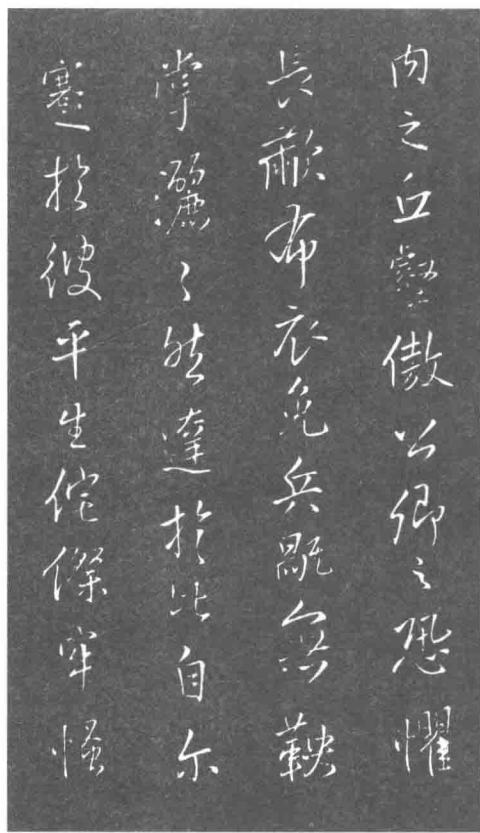 内之丘壑傲公卿之恐懼
長歗布衣免兵無鞅
掌灑〻然達於此自尓
蹇於彼平生侘傺牢慅